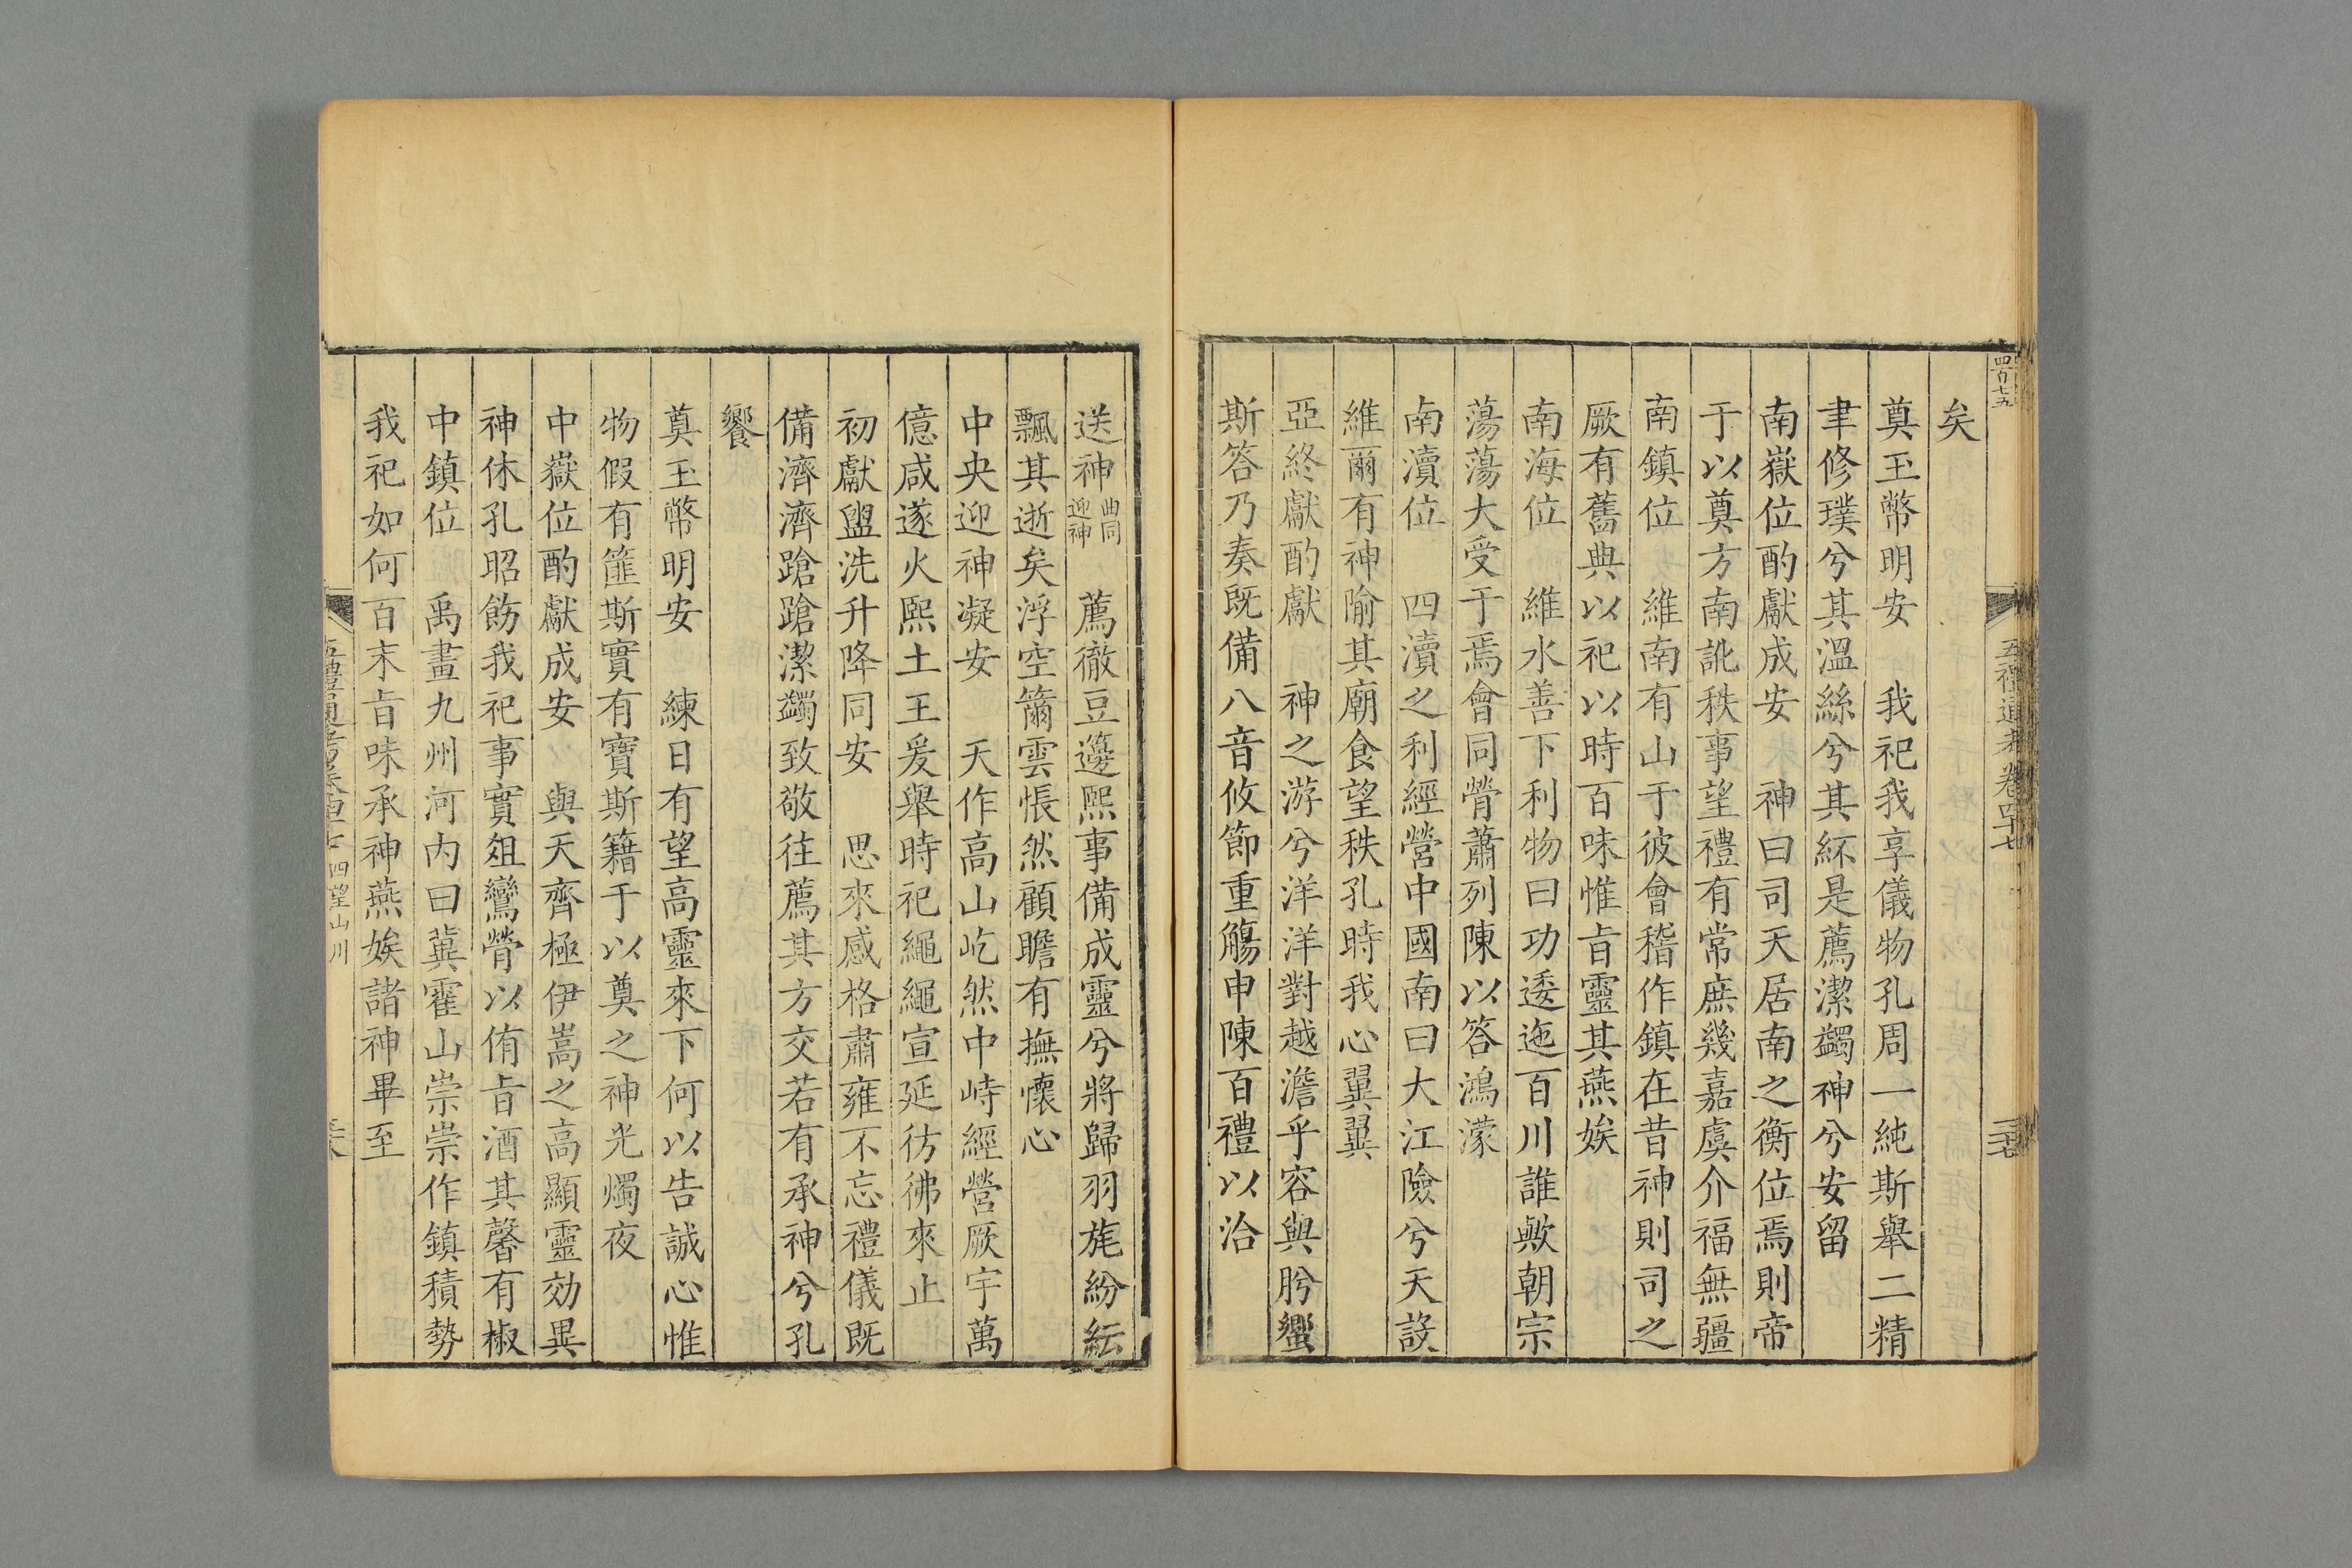 四百七五
五禮通考卷四十七
三十七
矣
奠玉幣明安　我祀我享儀物孔周一純斯舉二精
聿修璞兮其溫絲兮其紑是薦潔蠲神兮安留
南嶽位酌獻成安　神曰司天居南之衡位焉則帝
于以奠方南訛秩事望禮有常庶幾嘉虞介福無疆
南鎮位　維南有山于彼會稽作鎮在昔神則司之
厥有舊典以祀以時百味惟㫖靈其燕娭
南海位　維水善下利物曰功逶迤百川誰歟朝宗
蕩蕩大受于焉會同膋蕭列陳以答鴻濛
南瀆位　四瀆之利經營中國南曰大江險兮天設
維爾有神隃其廟食望秩孔時我心翼翼
亞終獻酌獻　神之游兮洋洋對越澹乎容與肸蠁
斯答乃奏既備八音攸節重觴申陳百禮以洽
送神曲同迎神　薦徹豆籩熙事備成靈兮將歸羽旄紛紜
飄其逝矣浮空䉲雲悵然顧瞻有撫懷心
中央迎神凝安　天作高山屹然中峙經營厥宇萬
億咸遂火熙土王爰舉時祀繩繩宣延彷彿來止
初獻盥洗升降同安　思來感格肅雍不忘禮儀既
備濟濟蹌蹌潔蠲致敬往薦其方交若有承神兮孔
饗
奠玉幣明安　練日有望高靈來下何以告誠心惟
物假有篚斯實有寶斯籍于以奠之神光燭夜
中嶽位酌獻成安　與天齊極伊嵩之高顯靈効異
神休孔昭飭我祀事實俎鸞膋以侑㫖酒其馨有椒
中鎮位　禹畫九州河內曰冀霍山崇崇作鎮積勢
我祀如何百末㫖味承神燕娭諸神畢至
四望山川